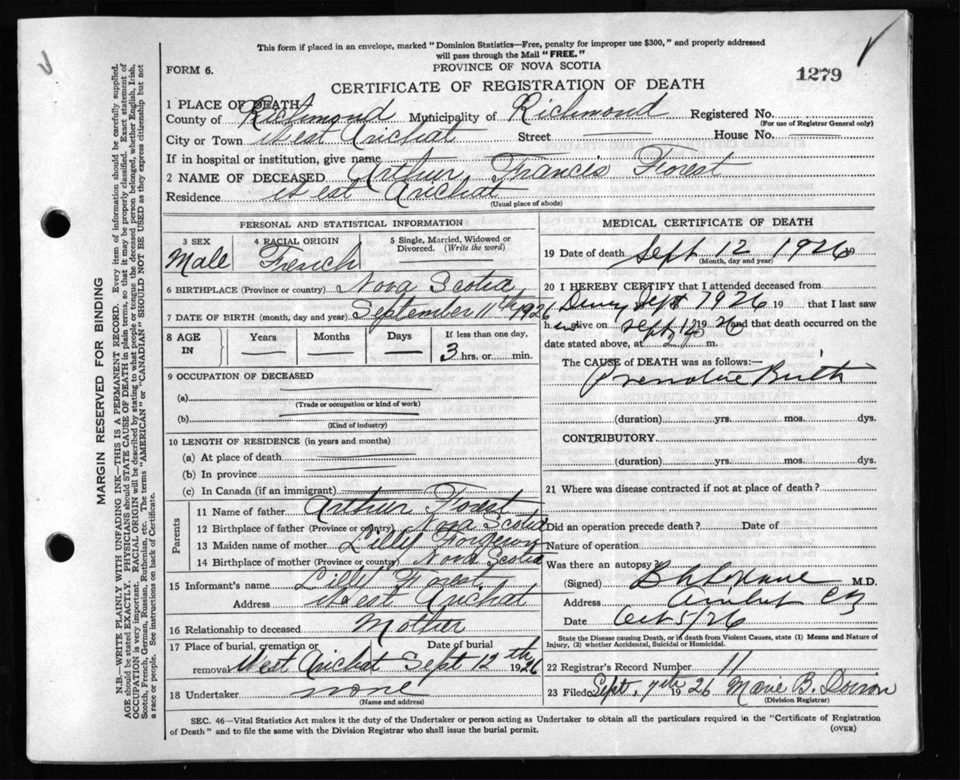 This form if placed in an envelope, marked "Dominion Statistics—Free, penalty for improper use $300," and properly addressed
will pass through the Mail "FREE."
FORM 6.
PROVINCE OF NOVA SCOTIA
1279
CERTIFICATE OF REGISTRATION OF DEATH
1 PLACE OF DEATH
County of Richmond Municipality of Richmond Registered No.
(For use of Registrar General only)
City or Town West Arichat Street House No.
If in hospital or institution, give name
2 NAME OF DECEASED Arthur Francis Forest
Residence West Arichat
(Usual place of abode)
PERSONAL AND STATISTICAL INFORMATION
3 SEX Male
4 RACIAL ORIGIN French
5 Single, Married, Widowed or Divorced. (Write the word)
6 BIRTHPLACE (Province or country) Nova Scotia
7 DATE OF BIRTH (month, day and year) September 11th 1926
8 AGE IN Years Months Days If less than one day, 3 hrs. or min.
9 OCCUPATION OF DECEASED
(a)
(Trade or occupation or kind of work)
(b)
(Kind of industry)
10 LENGTH OF RESIDENCE (in years and months)
(a) At place of death
(b) In province
(c) In Canada (if an immigrant)
Parents
11 Name of father Arthur Forest
12 Birthplace of father (Province or country) Nova Scotia
13 Maiden name of mother Lilly
14 Birthplace of mother (Province or country) Nova Scotia
15 Informant's name Lilly Forest
Address West Arichat
16 Relationship to deceased Mother
17 Place of burial, cremation or removal West Arichat Date of burial Sept 12th 1926
18 Undertaker none
(Name and address)
MEDICAL CERTIFICATE OF DEATH
19 Date of death Sept 12 1926
(Month, day and year)
20 I HEREBY CERTIFY that I attended deceased from
Sept 1926 19 that I last saw
h alive on Sept 12 19 26 and that death occurred on the
date stated above, at m.
The CAUSE of DEATH was as follows:
Premature Birth
(duration) yrs. mos. dys.
CONTRIBUTORY
(duration) yrs. mos. dys.
21 Where was disease contracted if not at place of death?
Did an operation precede death? Date of
Nature of operation
Was there an autopsy?
(Signed) M.D.
Address
Date Oct 5/26
State the Disease causing Death, or in death from Violent Causes, state (1) Means and Nature of
Injury, (2) whether Accidental, Suicidal or Homicidal.
22 Registrar's Record Number 11
23 Filed Sept. 1926 Marie B.
(Division Registrar)
SEC. 46—Vital Statistics Act makes it the duty of the Undertaker or person acting as Undertaker to obtain all the particulars required in the "Certificate of Registration
of Death" and to file the same with the Division Registrar who shall issue the burial permit.
(OVER)
MARGIN RESERVED FOR BINDING
N.B.—WRITE PLAINLY WITH UNFADING INK—THIS IS A PERMANENT RECORD. Every item of information should be carefully supplied.
AGE should be stated EXACTLY. PHYSICIANS should STATE CAUSE OF DEATH in plain terms, so that it may be properly classified. Exact statement of
OCCUPATION is very important. RACIAL ORIGIN will be described by stating to what people or tongue the deceased person belonged, whether English, Irish,
Scotch, French, German, Russian, Ruthenian, etc. The terms "AMERICAN" or "CANADIAN" SHOULD NOT BE USED as they express citizenship but not
a race or people. See instructions on back of Certificate.